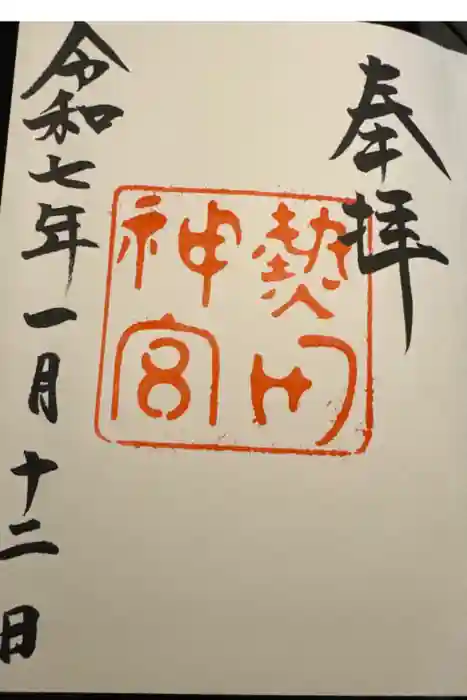 奉拝
熱田
神宮
令和七年一月十二日